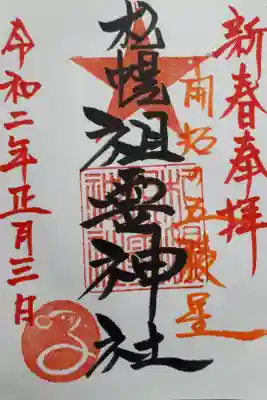 新春奉拝
開拓の五稜星
札幌祖霊神社
令和二年正月三日
子